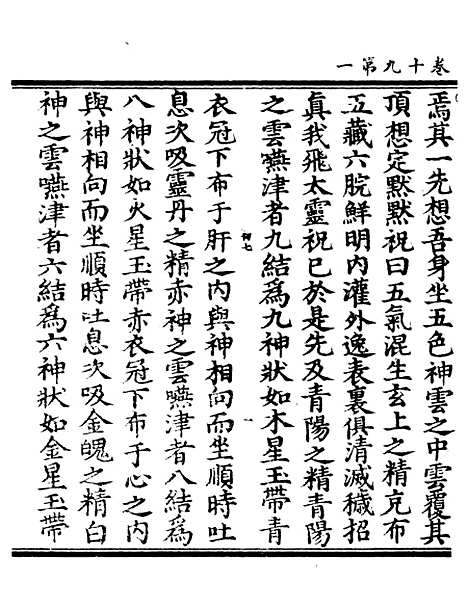 卷十九第一
焉其一先想吾身坐五色神雲之中雲覆其
頂想定黙黙祝曰五氣混生玄上之精充布
五藏六脘鮮明内灌外逸表裏俱清滅穢招
眞我飛太靈祝已於是先及青陽之精青陽
之雲嚥津者九結爲九神狀如木星玉帶青
衣冠下布于肝之内與神相向而坐順時吐
息次吸靈丹之精赤神之雲嚥津者八結爲
八神狀如火星玉帶赤衣冠下布于心之内
與神相向而坐順時吐息次吸金魄之精白
神之雲嚥津者六結爲六神狀如金星玉帶